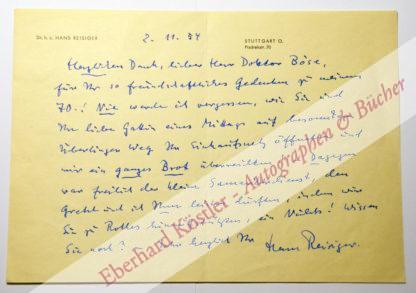 Dr. h. c. HANS REISIGER
2. 11. 54
STUTTGART O.
Pischekstr. 70
Herzlichen Dank, lieber Herr Doktor Böse,
für Ihr so freundschaftliches Gedenken zu meinem
70.! Nie werde ich vergessen, wie Sie und
Ihre liebe Gattin eines Mittags auf
Überlinger Weg Ihr Einkaufsnetz öffneten und
mir ein ganzes Brot überreichten! Dagegen
war freilich der kleine Samariterdienst, den
Gretel und ich Ihnen leisten durften, indem wir
Sie zu Bette, ein Nichts! Wissen
Sie noch? Ihr Hans Reisiger.
Eberhard Köstler - Autographen & Bücher